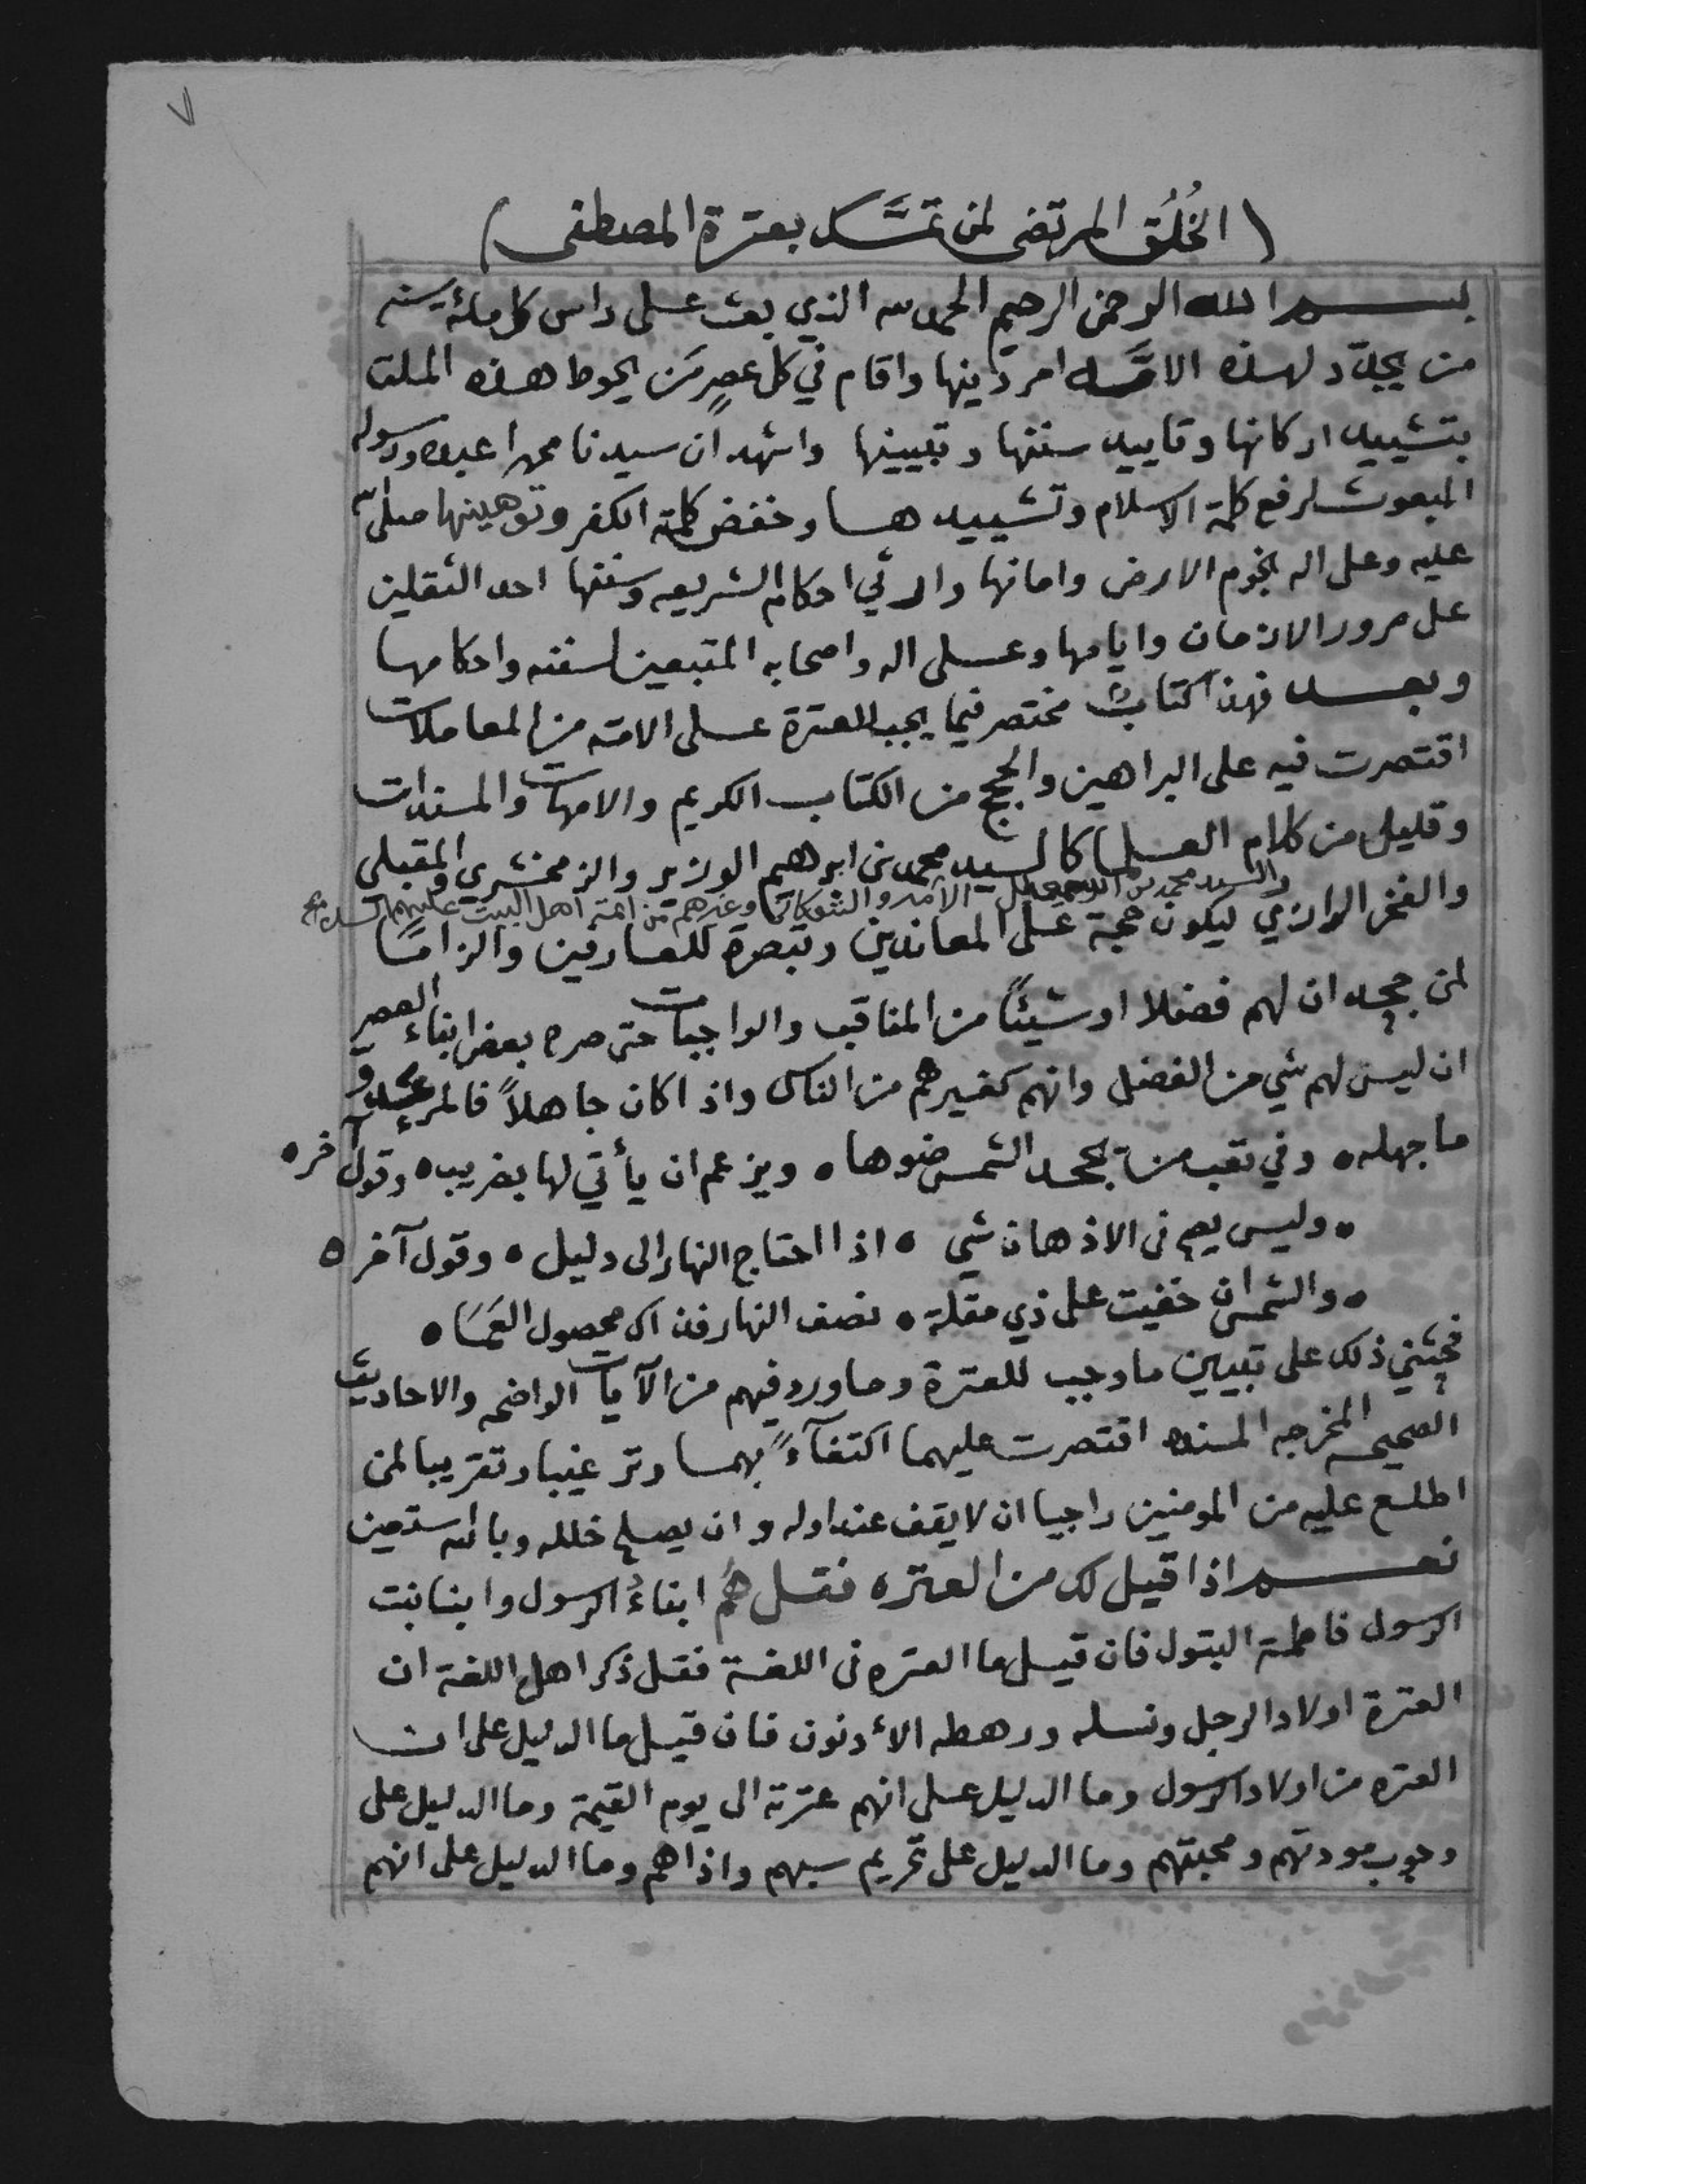 ٧
(الخُلُق المرتضى لمن تمسَّك بعترة المصطفى)
بسم الله الرحمن الرحيم الحمد لله الذي بعث على راس كل مائة سنه
من يجدّد لهذه الامَّه امر دينها واقام في كل عصرٍ من يحوط هذه الملت
بتشييد اركانها وتاييد سننها وتبيينها واشهد ان سيدنا محمدا عبده ورسوله
المبعوث لرفع كلمة الاسلام وتشييدها وخفض كلمة الكفر وتوهينها صلى الله
عليه وعلى اله نجوم الارض وامانها واحكام الشريعه وسننها احد الثقلين
على مرور الازمان وايامها وعلى اله واصحابه المتبعين لسننه واحكامها
وبعد فهذا كتاب مختصر فيما يجب للعترة على الامته من المعاملات
اقتصرت فيه على البراهين والحجج من الكتاب الكريم والامهات والمسندات
وقليل من كلام العلما كالسيد محمد بن ابرهيم الوزير والزمخشري والمقبلي
والسيد محمد بن اسمعيل الامير والشوكاني وغيرهم من ائمة اهل البيت عليهم السلام
والفخر الرازي ليكون حجة على المعاندين وتبصرة للعارفين والزامًا
لمن جحد ان لهم فضلا او شيئًا من المناقب والواجبات حتى صرح بعض ابناء العصر
ان ليس لهم شي من الفضل وانهم كغيرهم من الناس واذا كان جاهلاً فالمرء عدو
ما جهله ه وفي تعب من يجحد الشمس ضوها ه ويزعم ان يأتي لها بضريب ه وقول آخر ه
ه وليس يصح في الاذهان شي ه اذا احتاج النهار الى دليل ه وقول آخر ه
ه والشمس ان خفيت على ذي مقلة ه نصف النهار فذاك محصول العَمَا ه
فحثني ذلك على تبيين ما وجب للعترة وما ورد فيهم من الآيات الواضحه والاحاديث
الصحيحه المخرجه المسنده اقتصرت عليهما اكتفآءً بهما وترغيبا وتقريبا لمن
اطلع عليه من المومنين راجيا ان لا يقف عند اوله وان يصلح خلله وبالله استعين
نعم اذا قيل لك من العتره فقل هُم ابناءُ الرسول وابنا بنت
الرسول فاطمة البتول فان قيل ما العتره في اللغة فقل ذكر اهل اللغة ان
العترة اولاد الرجل ونسله ورهطه الأدنون فان قيل ما الدليل على ان
العتره من اولاد الرسول وما الدليل على انهم عترته الى يوم القيمة وما الدليل على
وجوب مودتهم ومحبتهم وما الدليل على تحريم سبهم واذاهم وما الدليل على انهم